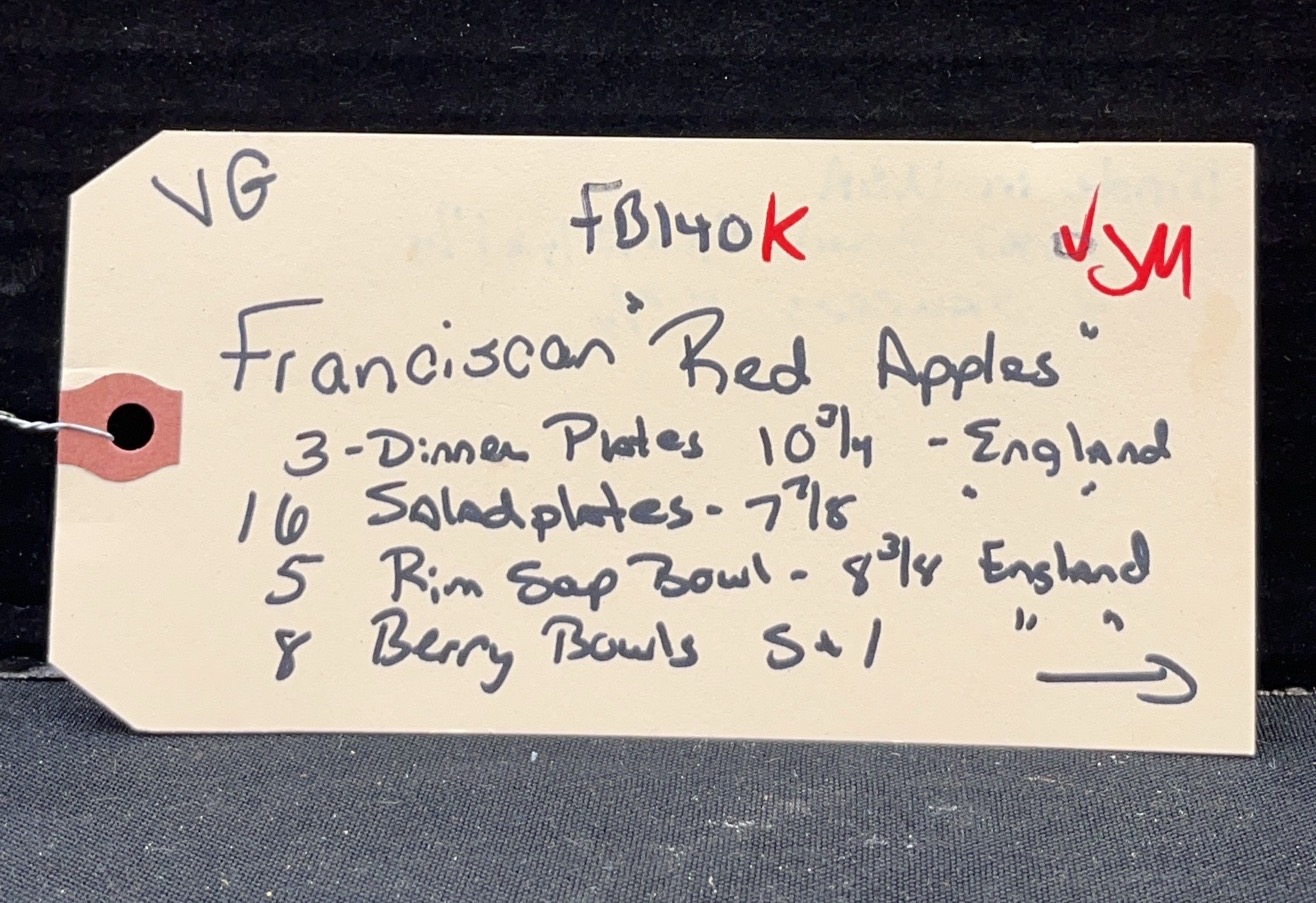 VG
FB140K
√JM
Franciscan "Red Apples"
3-Dinner Plates 10 3/4 - England
16 Salad plates - 7 7/8 " "
5 Rim Soup Bowl - 8 3/8 England
8 Berry Bowls " "